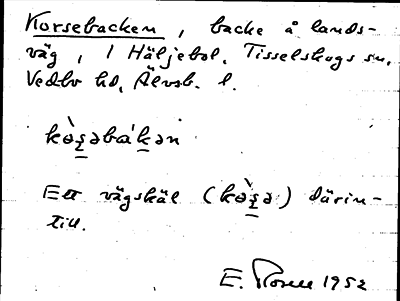 Korsebacken, backe å lands-
väg, i Häljebol, Tisselskogs sn,
Vedbo hd, Älvsb. l.
kò̱səbákən
Ett vägskäl (kò̱sə) därin-
till.
E. 1952